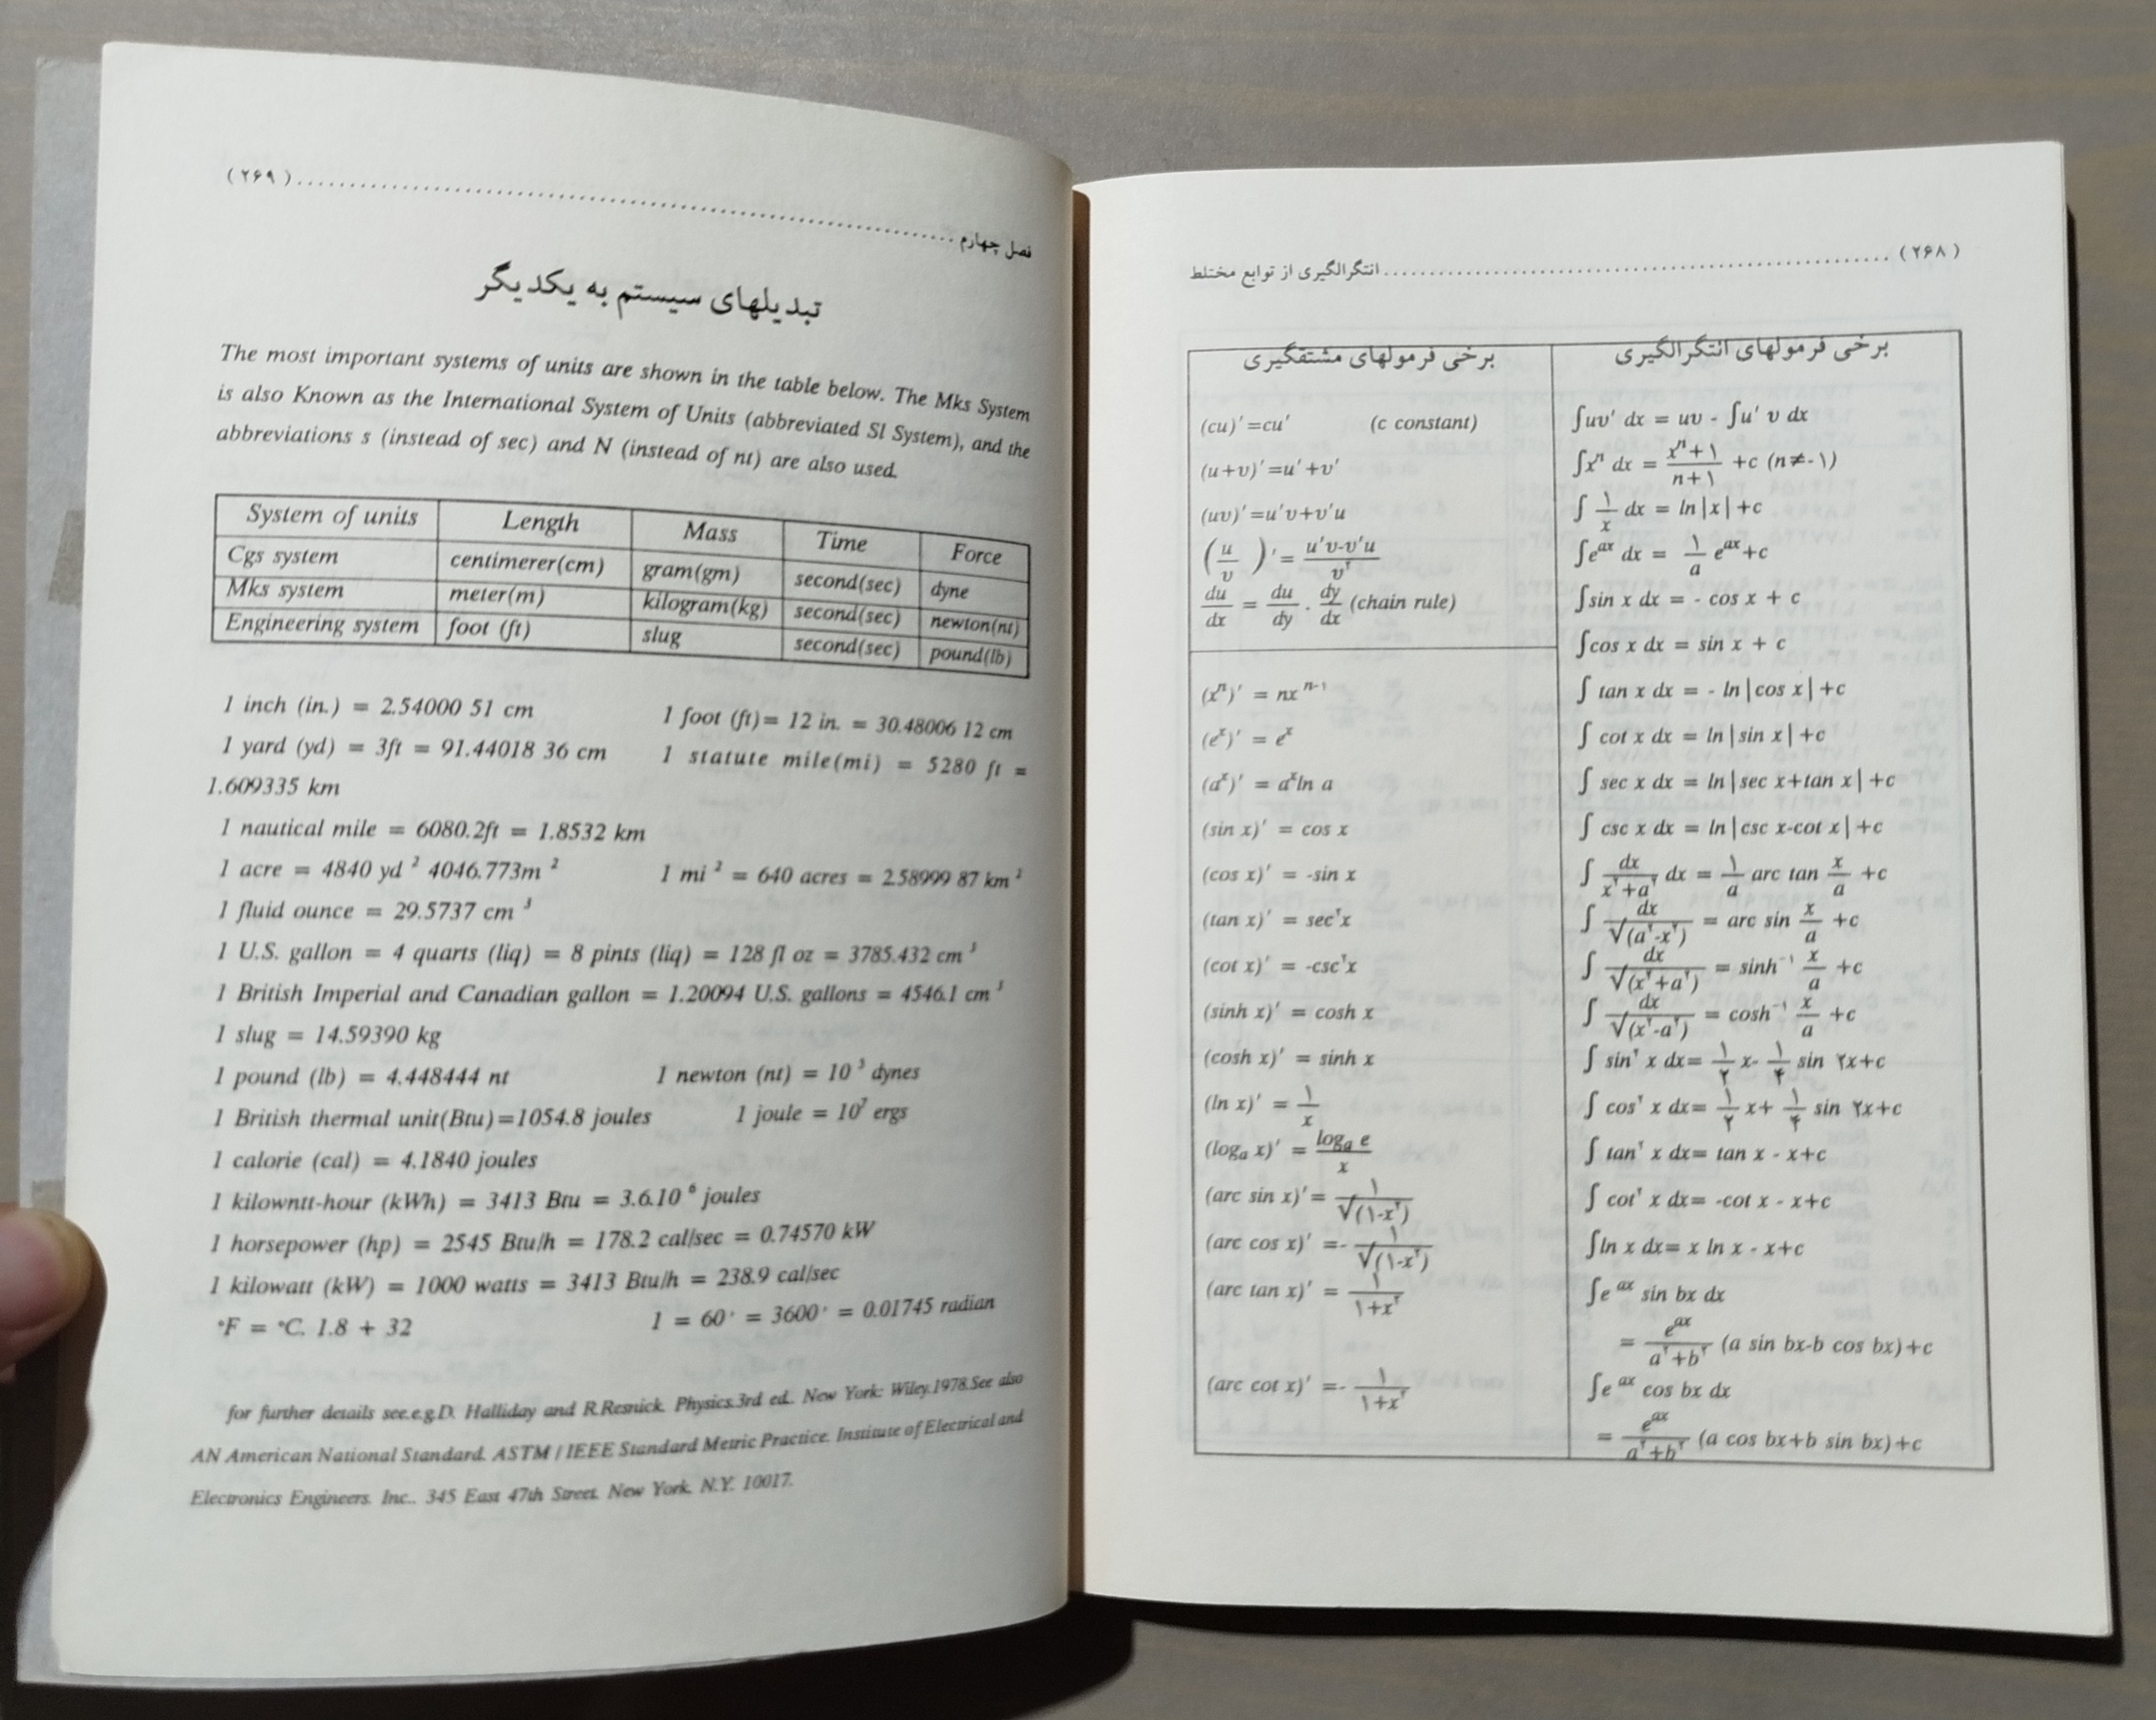 انتگرالگیری از توابع مختلط ........ (۲۶۸)
برخی فرمولهای مشتقگیری
(cu)′=cu′ (c constant)
(u+υ)′=u′+υ′
(uυ)′=u′υ+υ′u
(u/υ)′= (u′υ-υ′u)/υ^۲
du/dx = du/dy . dy/dx (chain rule)
(x^n)′ = nx^n-۱
(e^x)′ = e^x
(a^x)′ = a^x ln a
(sin x)′ = cos x
(cos x)′ = -sin x
(tan x)′ = sec^۲x
(cot x)′ = -csc^۲x
(sinh x)′ = cosh x
(cosh x)′ = sinh x
(ln x)′ = ۱/x
(log_a x)′ = log_a e/x
(arc sin x)′= ۱/√(۱-x^۲)
(arc cos x)′ =- ۱/√(۱-x^۲)
(arc tan x)′ = ۱/۱+x^۲
(arc cot x)′ =- ۱/۱+x^۲
برخی فرمولهای انتگرالگیری
∫uυ′ dx = uυ - ∫u′ υ dx
∫x^n dx = x^n+۱/n+۱ +c (n≠-۱)
∫ ۱/x dx = ln|x|+c
∫e^ax dx = ۱/a e^ax+c
∫sin x dx = - cos x + c
∫cos x dx = sin x + c
∫ tan x dx = - ln|cos x|+c
∫ cot x dx = ln|sin x|+c
∫ sec x dx = ln|sec x+tan x|+c
∫ csc x dx = ln|csc x-cot x|+c
∫ dx/x^۲+a^۲ dx = ۱/a arc tan x/a +c
∫ dx/√(a^۲-x^۲) = arc sin x/a +c
∫ dx/√(x^۲+a^۲) = sinh^-۱ x/a +c
∫ dx/√(x^۲-a^۲) = cosh^-۱ x/a +c
∫ sin^۲ x dx= ۱/۲ x- ۱/۴ sin ۲x+c
∫ cos^۲ x dx= ۱/۲ x+ ۱/۴ sin ۲x+c
∫ tan^۲ x dx= tan x - x+c
∫ cot^۲ x dx= -cot x - x+c
∫ln x dx= x ln x - x+c
∫e^ax sin bx dx
= e^ax/a^۲+b^۲ (a sin bx-b cos bx)+c
∫e^ax cos bx dx
= e^ax/a^۲+b^۲ (a cos bx+b sin bx)+c
فصل چهارم ........ (۲۶۹)
تبدیلهای سیستم به یکدیگر
The most important systems of units are shown in the table below. The Mks System
is also Known as the International System of Units (abbreviated Sl System), and the
abbreviations s (instead of sec) and N (instead of nt) are also used.
System of units Length Mass Time Force
Cgs system centimerer(cm) gram(gm) second(sec) dyne
Mks system meter(m) kilogram(kg) second(sec) newton(nt)
Engineering system foot (ft) slug second(sec) pound(lb)
1 inch (in.) = 2.54000 51 cm 1 foot (ft)= 12 in. = 30.48006 12 cm
1 yard (yd) = 3ft = 91.44018 36 cm 1 statute mile(mi) = 5280 ft =
1.609335 km
1 nautical mile = 6080.2ft = 1.8532 km
1 acre = 4840 yd ² 4046.773m ² 1 mi ² = 640 acres = 2.58999 87 km ²
1 fluid ounce = 29.5737 cm ³
1 U.S. gallon = 4 quarts (liq) = 8 pints (liq) = 128 fl oz = 3785.432 cm ³
1 British Imperial and Canadian gallon = 1.20094 U.S. gallons = 4546.1 cm ³
1 slug = 14.59390 kg
1 pound (lb) = 4.448444 nt 1 newton (nt) = 10 ⁵ dynes
1 British thermal unit(Btu)=1054.8 joules 1 joule = 10⁷ ergs
1 calorie (cal) = 4.1840 joules
1 kilowntt-hour (kWh) = 3413 Btu = 3.6.10 ⁶ joules
1 horsepower (hp) = 2545 Btu/h = 178.2 cal/sec = 0.74570 kW
1 kilowatt (kW) = 1000 watts = 3413 Btu/h = 238.9 cal/sec
°F = °C. 1.8 + 32 1 = 60′ = 3600′ = 0.01745 radian
for further details see.e.g.D. Halliday and R.Resnick. Physics.3rd ed.. New York: Wiley.1978.See also
AN American National Standard. ASTM / IEEE Standard Metric Practice. Institute of Electrical and
Electronics Engineers. Inc.. 345 East 47th Street. New York. N.Y. 10017.